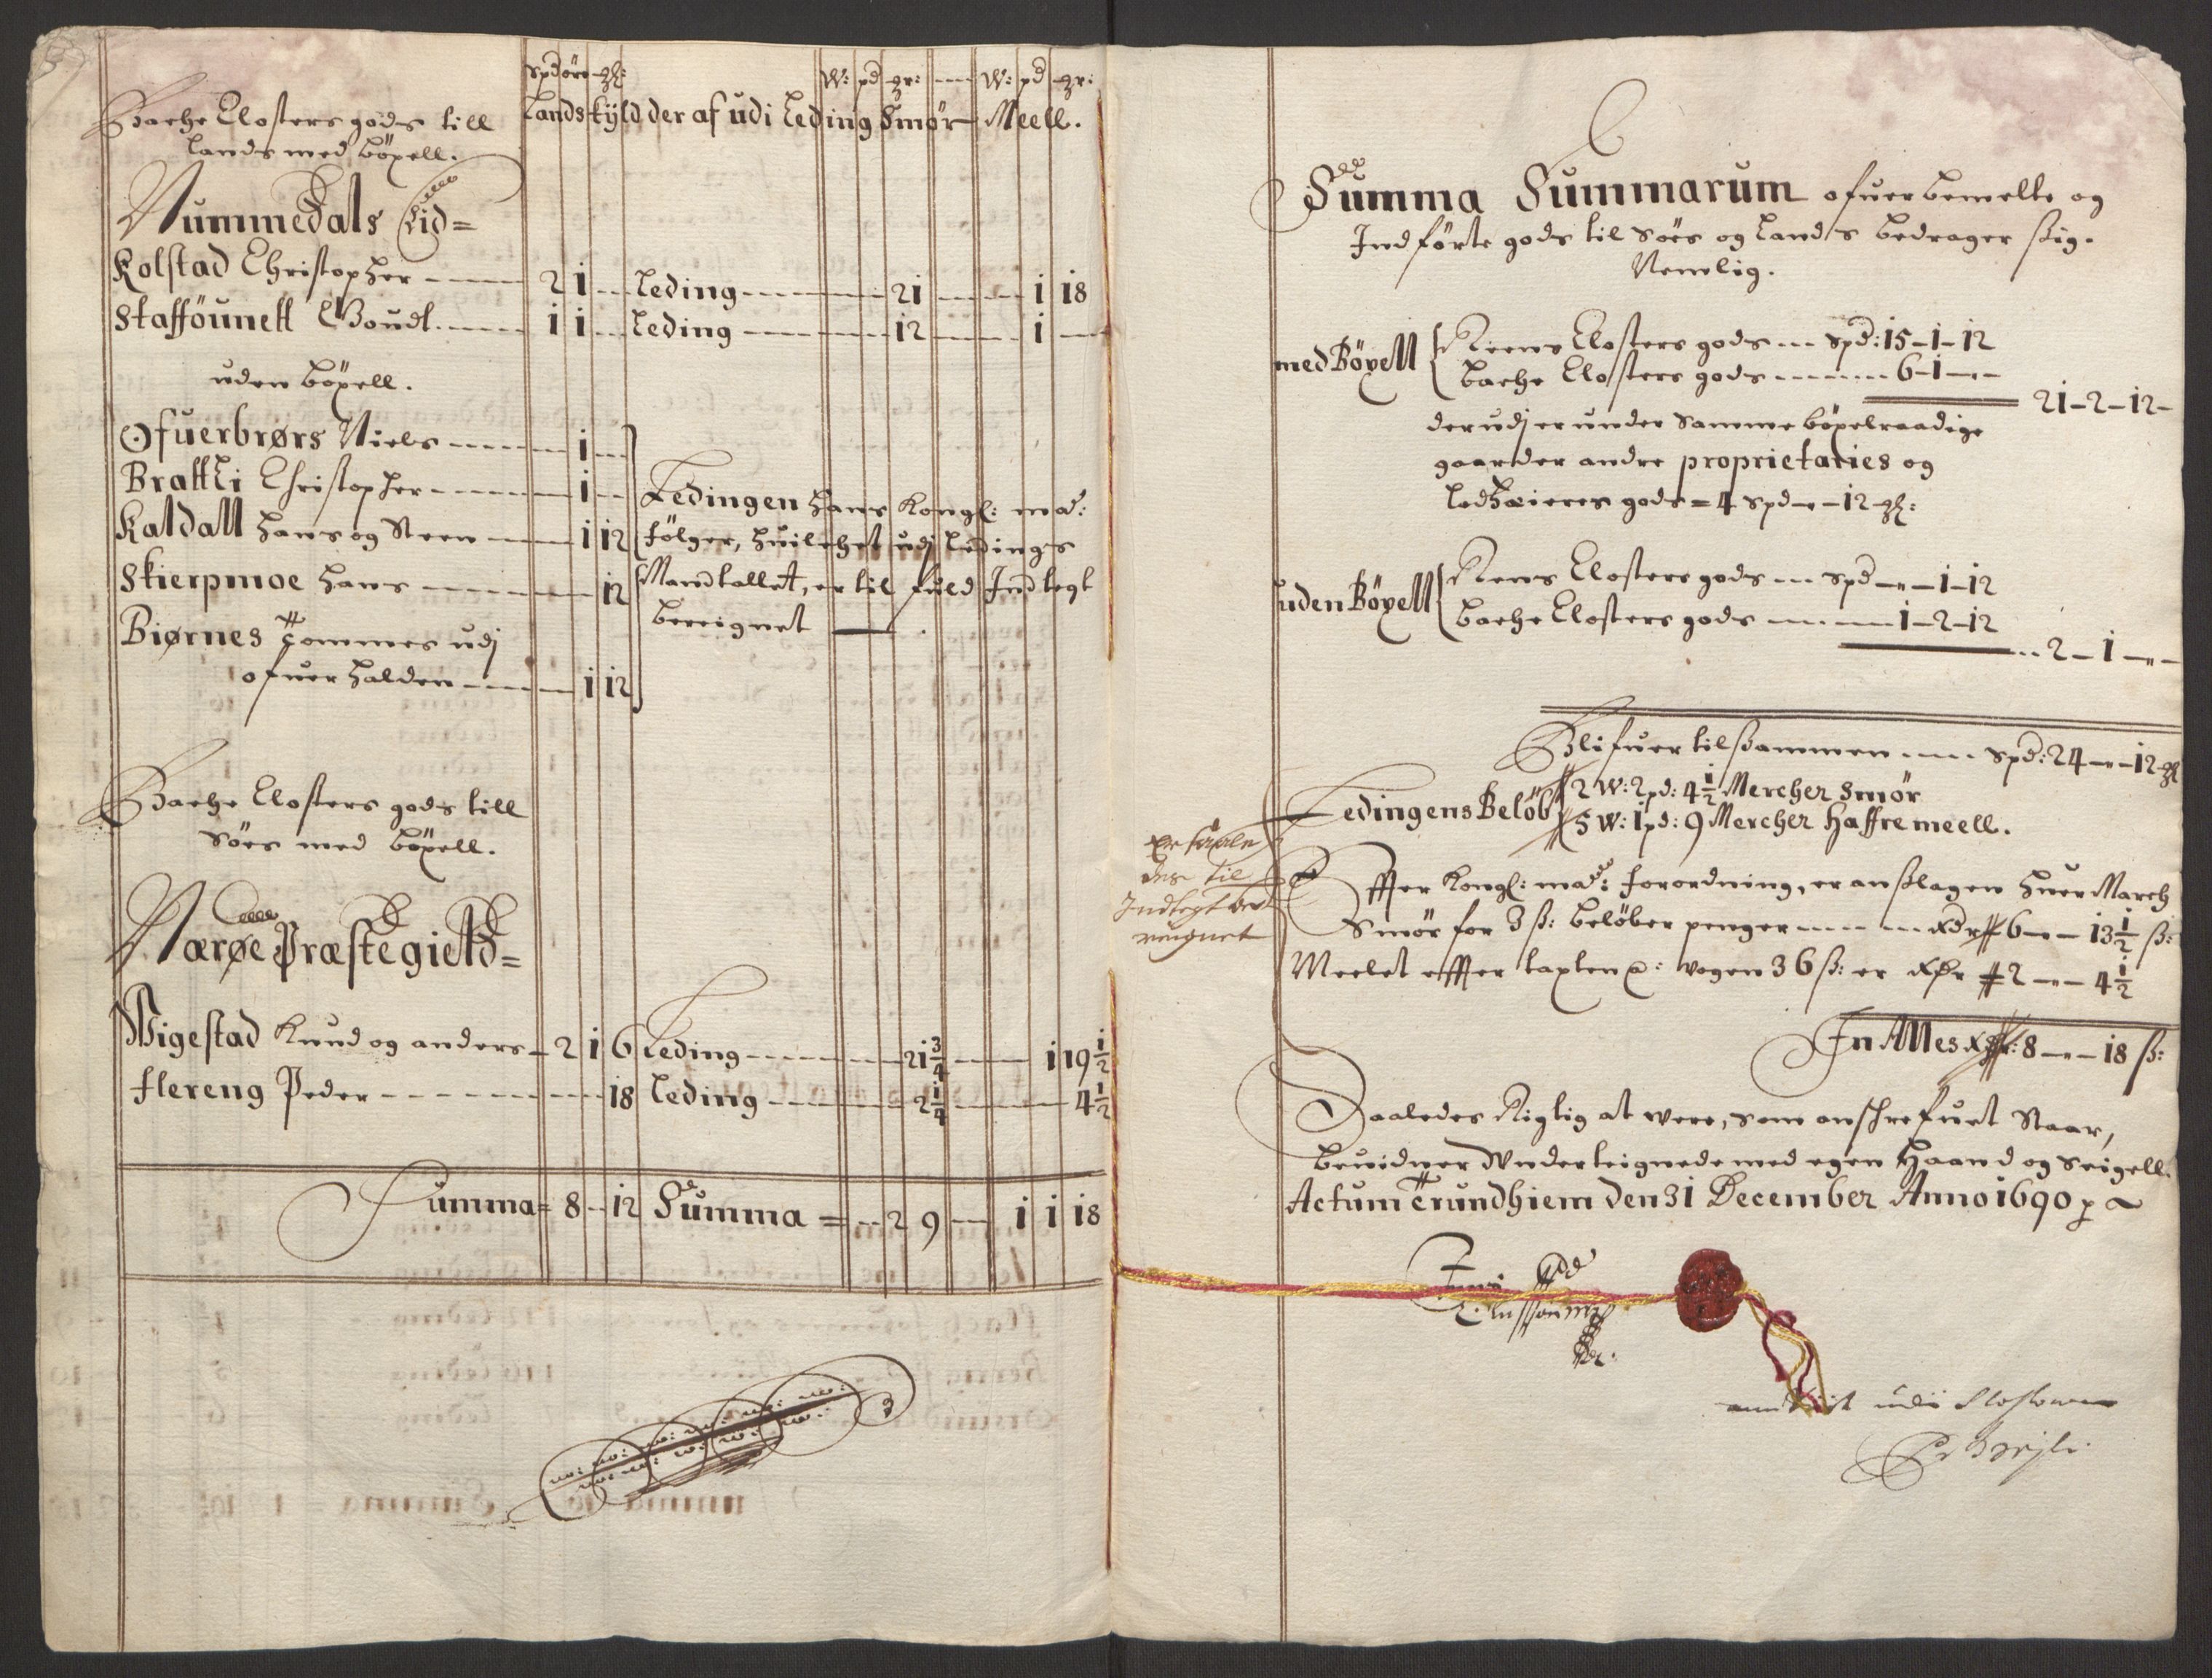 Spd øre gl: W: pd gr: W: pd gr:
Bache Closters gods till Landskÿld der af udi Leding Smør Meell.
Lands med böxell.
Nummedals Lid=
Kolstad Christopher 2 1 Leding 21 1 18
Staffounell 1 1 Leding 12 1
uden böxell.
Ofuerbrørs Niels 1
Brattli Christopher 1
Kaldall Hans og Steen 1 12
Skierpmoe Hans 12
Biørnes Tommes udj
ofuerhalden 1 12
Ledingen Hans Kongl: Maÿ:
følger, huilchet udj Ledings
Mandtallet, er til fuld Indtegt
bereignet
Bache Closters gods till
Søes med böxell.
Nærøe Præstegield=
Wigestad Knud og anders 2 1 6 Leding 21 3/4 1 19 1/2
Flereng Peder 18 Leding 2 1/4 4 1/2
Summa= 8 12 Summa = 2 9 1 1 18
Summa Summarum ofuerbemelte og
Indførte gods til Søes og Lands bedrager sig.
Nemlig.
med Böxell Riens Closters gods spd: 15-1-12
Bache Closters gods 6-1-
21-2-12-
der udj er under samme böxelraadige
gaarder andre proprietaries og
Lodhæieres gods = 4 spd - 12 gl:
uden Böxell Riens Closters gods spd - 1-12
Bache Closters gods 1-2-12
2-1-
Blifuer tilsammen spd: 24 - 12 gl
Ledingens Beløb 2 W: 2 pd: 4 1/2 Mercher Smør
5 W: 1 pd: 9 Mercher Haffremeell.
Er saale
des til
Indtegt be
reignet
Effter Kongl: Maÿ: forordning, er anslagen huer March
Smør for 3 ß: beløber penger 6 - 13 1/2 ß:
Meelet effter taxten a: vogen 36 ß: er 2 - 4 1/2
In Alles 8 - 18 ß:
Saaledes Rigtig at were, som anschrefuet Staar,
beuidner Underteignede med egen Haand og Seigell.
Actum Trundhiem den 31 December Anno 1690